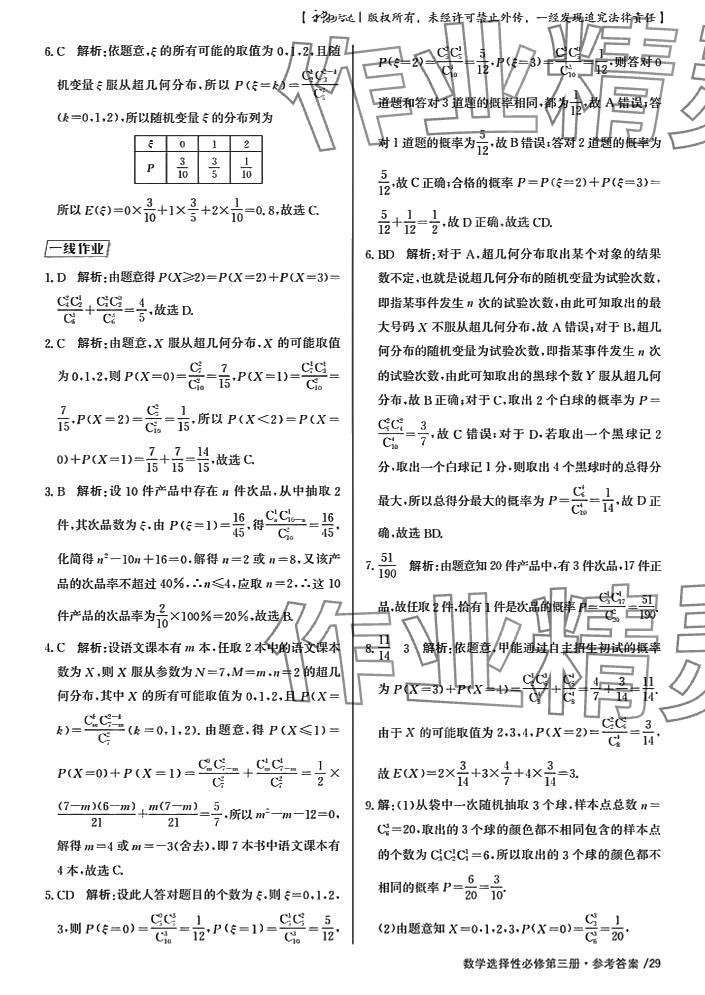 版权所有，未经许可禁止外传，一经发现追究法律责任】
6. C 解析:依题意,ξ的所有可能的取值为0,1,2,且随
机变量ξ服从超几何分布,所以P(ξ=k)=
(k=0,1,2),所以随机变量ξ的分布列为
ξ 0 1 2
P 3/10 3/5 1/10
所以E(ξ)=0×3/10+1×3/5+2×1/10=0.8,故选C.
一线作业
1. D 解析:由题意得P(X⩾2)=P(X=2)+P(X=3)=
=4/5,故选D.
2. C 解析:由题意,X服从超几何分布,X的可能取值
为0,1,2,则P(X=0)=C₇²/C₁₀²=7/15,P(X=1)=C₇¹C₃¹/C₁₀²=
7/15,P(X=2)=C₃²/C₁₀²=1/15,所以P(X<2)=P(X=
0)+P(X=1)=7/15+7/15=14/15,故选C.
3. B 解析:设10件产品中存在n件次品,从中抽取2
件,其次品数为ξ,由P(ξ=1)=16/45,得=16/45,
化简得n²-10n+16=0,解得n=2或n=8,又该产
品的次品率不超过40%,∴n⩽4,应取n=2,∴这10
件产品的次品率为2/10×100%=20%,故选B.
4. C 解析:设语文课本有m本,任取2本中的语文课本
数为X,则X服从参数为N=7,M=m,n=2的超几
何分布,其中X的所有可能取值为0,1,2,且P(X=
k)=(k=0,1,2).由题意,得P(X⩽1)=
P(X=0)+P(X=1)==1/2×
(7-m)(6-m)/21+m(7-m)/21=5/7,所以m²-m-12=0,
解得m=4或m=-3(舍去),即7本书中语文课本有
4本,故选C.
5. CD 解析:设此人答对题目的个数为ξ,则ξ=0,1,2,
3,则P(ξ=0)==1/12,P(ξ=1)==5/12,
P(ξ=2)==5/12,P(ξ=3)==1/12,则答对0
道题和答对3道题的概率相同,都为1/12,故A错误;答
对1道题的概率为5/12,故B错误;答对2道题的概率为
5/12,故C正确;合格的概率P=P(ξ=2)+P(ξ=3)=
5/12+1/12=1/2,故D正确,故选CD.
6. BD 解析:对于A,超几何分布取出某个对象的结果
数不定,也就是说超几何分布的随机变量为试验次数,
即指某事件发生n次的试验次数,由此可知取出的最
大号码X不服从超几何分布,故A错误;对于B,超几
何分布的随机变量为试验次数,即指某事件发生n次
的试验次数,由此可知取出的黑球个数Y服从超几何
分布,故B正确;对于C,取出2个白球的概率为P=
=3/7,故C错误;对于D,若取出一个黑球记2
分,取出一个白球记1分,则取出4个黑球时的总得分
最大,所以总得分最大的概率为P==1/14,故D正
确,故选BD.
7. 51/190 解析:由题意知20件产品中,有3件次品,17件正
品,故任取2件,恰有1件是次品的概率P=C₃¹C₁₇¹/C₂₀²=51/190.
8. 11/14 3 解析:依题意,甲能通过自主招生初试的概率
为P(X=3)+P(X=4)==4/7+3/14=11/14.
由于X的可能取值为2,3,4,P(X=2)==3/14,
故E(X)=2×3/14+3×4/7+4×3/14=3.
9. 解:(1)从袋中一次随机抽取3个球,样本点总数n=
C₆³=20,取出的3个球的颜色都不相同包含的样本点
的个数为C₃¹C₂¹C₁¹=6,所以取出的3个球的颜色都不
相同的概率P=6/20=3/10.
(2)由题意知X=0,1,2,3,P(X=0)=C₃³/C₆³=1/20,
数学选择性必修第三册·参考答案/29
作业精灵
作业精灵